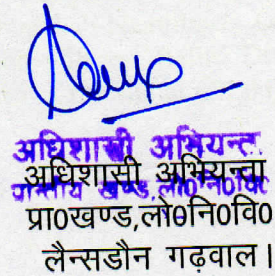 अधिशासी अभियन्ता
प्रान्तीय खण्ड, लो0नि0वि0
अधिशासी अभियन्ता
प्रा0खण्ड,लो0नि0वि0
लैन्सडौन गढवाल।